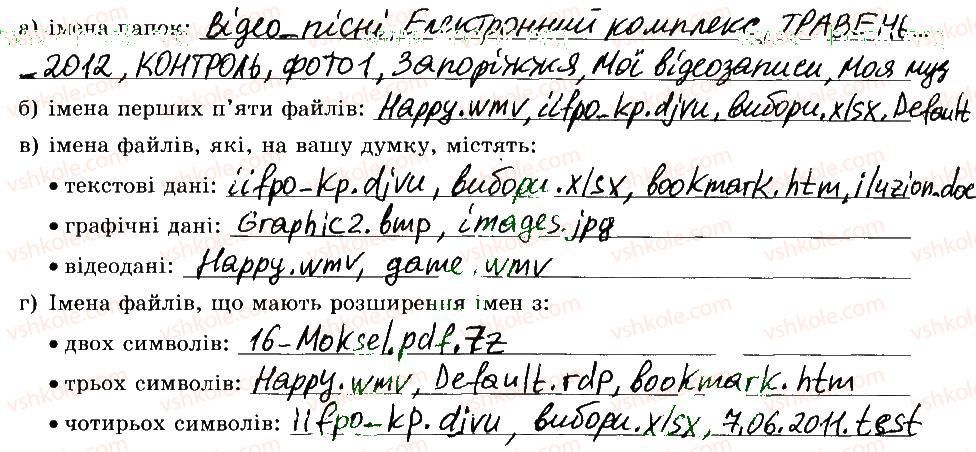 а) імена папок: Відео_пісні, Електронний комплекс, ТРАВЕНЬ
_2012, КОНТРОЛЬ, ФОТО1, Запоріжжя, Мої відеозаписи, Моя муз
б) імена перших п'яти файлів: Happy.wmv, iifpo_kp.djvu, вибори.xlsx, Default
в) імена файлів, які, на вашу думку, містять:
• текстові дані: iifpo-kp.djvu, вибори.xlsx, bookmark.htm, iluzion.doc
• графічні дані: Graphic2.bmp, images.jpg
• відеодані: Happy.wmv, game.wmv
г) Імена файлів, що мають розширення імен з:
• двох символів: 16-Moksel.pdf.7z
• трьох символів: Happy.wmv, Default.rdp, bookmark.htm
• чотирьох символів: iifpo_kp.djvu, вибори.xlsx, 7.06.2011.test